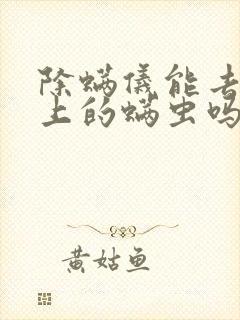 除螨儀能去
上的螨虫吗
黄姑鱼